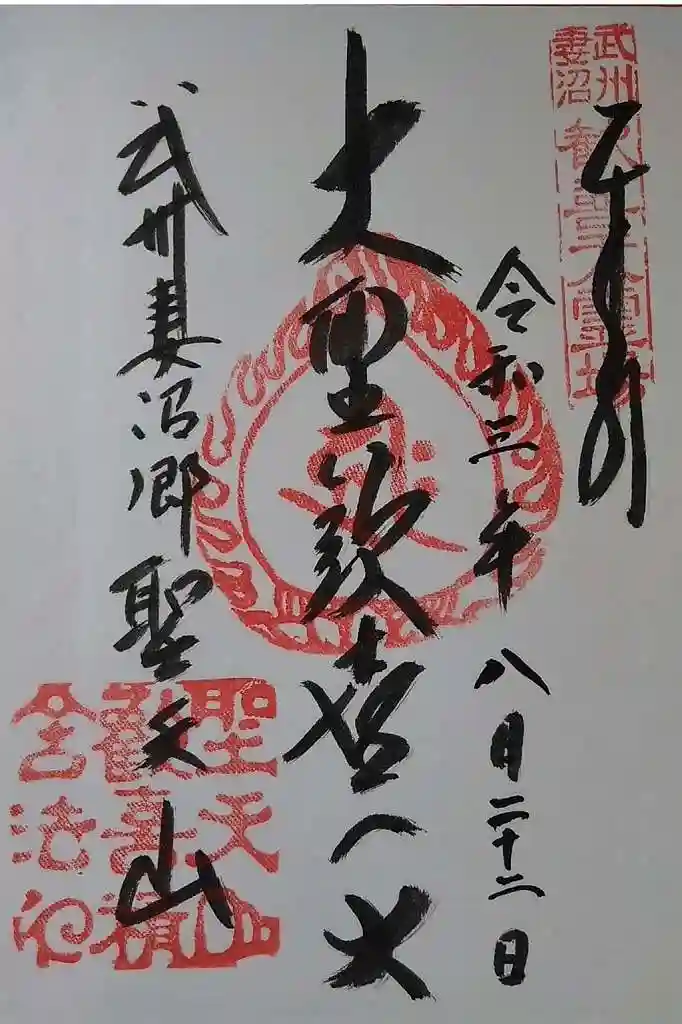 武州
妻沼
歓喜天霊場
奉拝
令和三年
八月二十二日
大聖歓喜天
武州妻沼郷
聖天山
聖天山
歓喜院